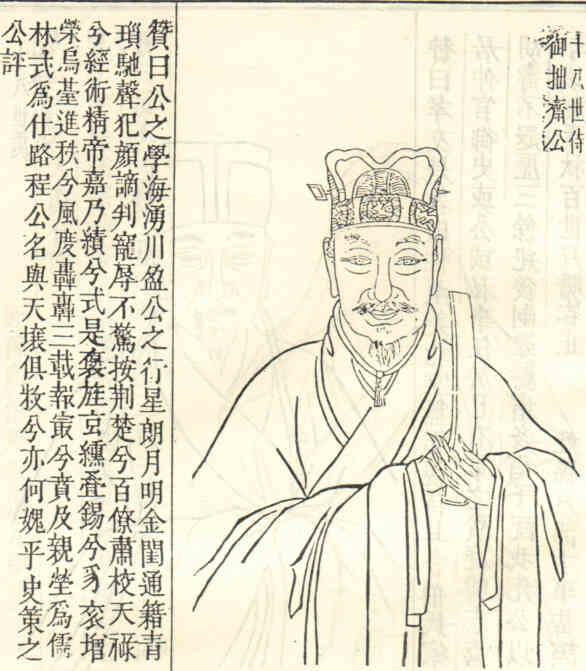 十八世侍
御拙濟公
贊曰公之學海湧川盈公之行星朗月明金閨通籍青
瑣馳聲犯顏謫判寵辱不驚按荆楚兮百僚肅校天祿
兮經術精帝嘉乃績兮式是褒旌玄纁疊錫兮豸衮增
榮烏臺進秩兮風度轟轟三載報最兮賁及親塋爲儒
林式爲仕路程公名與天壤俱兮亦何媿乎史策之
公評